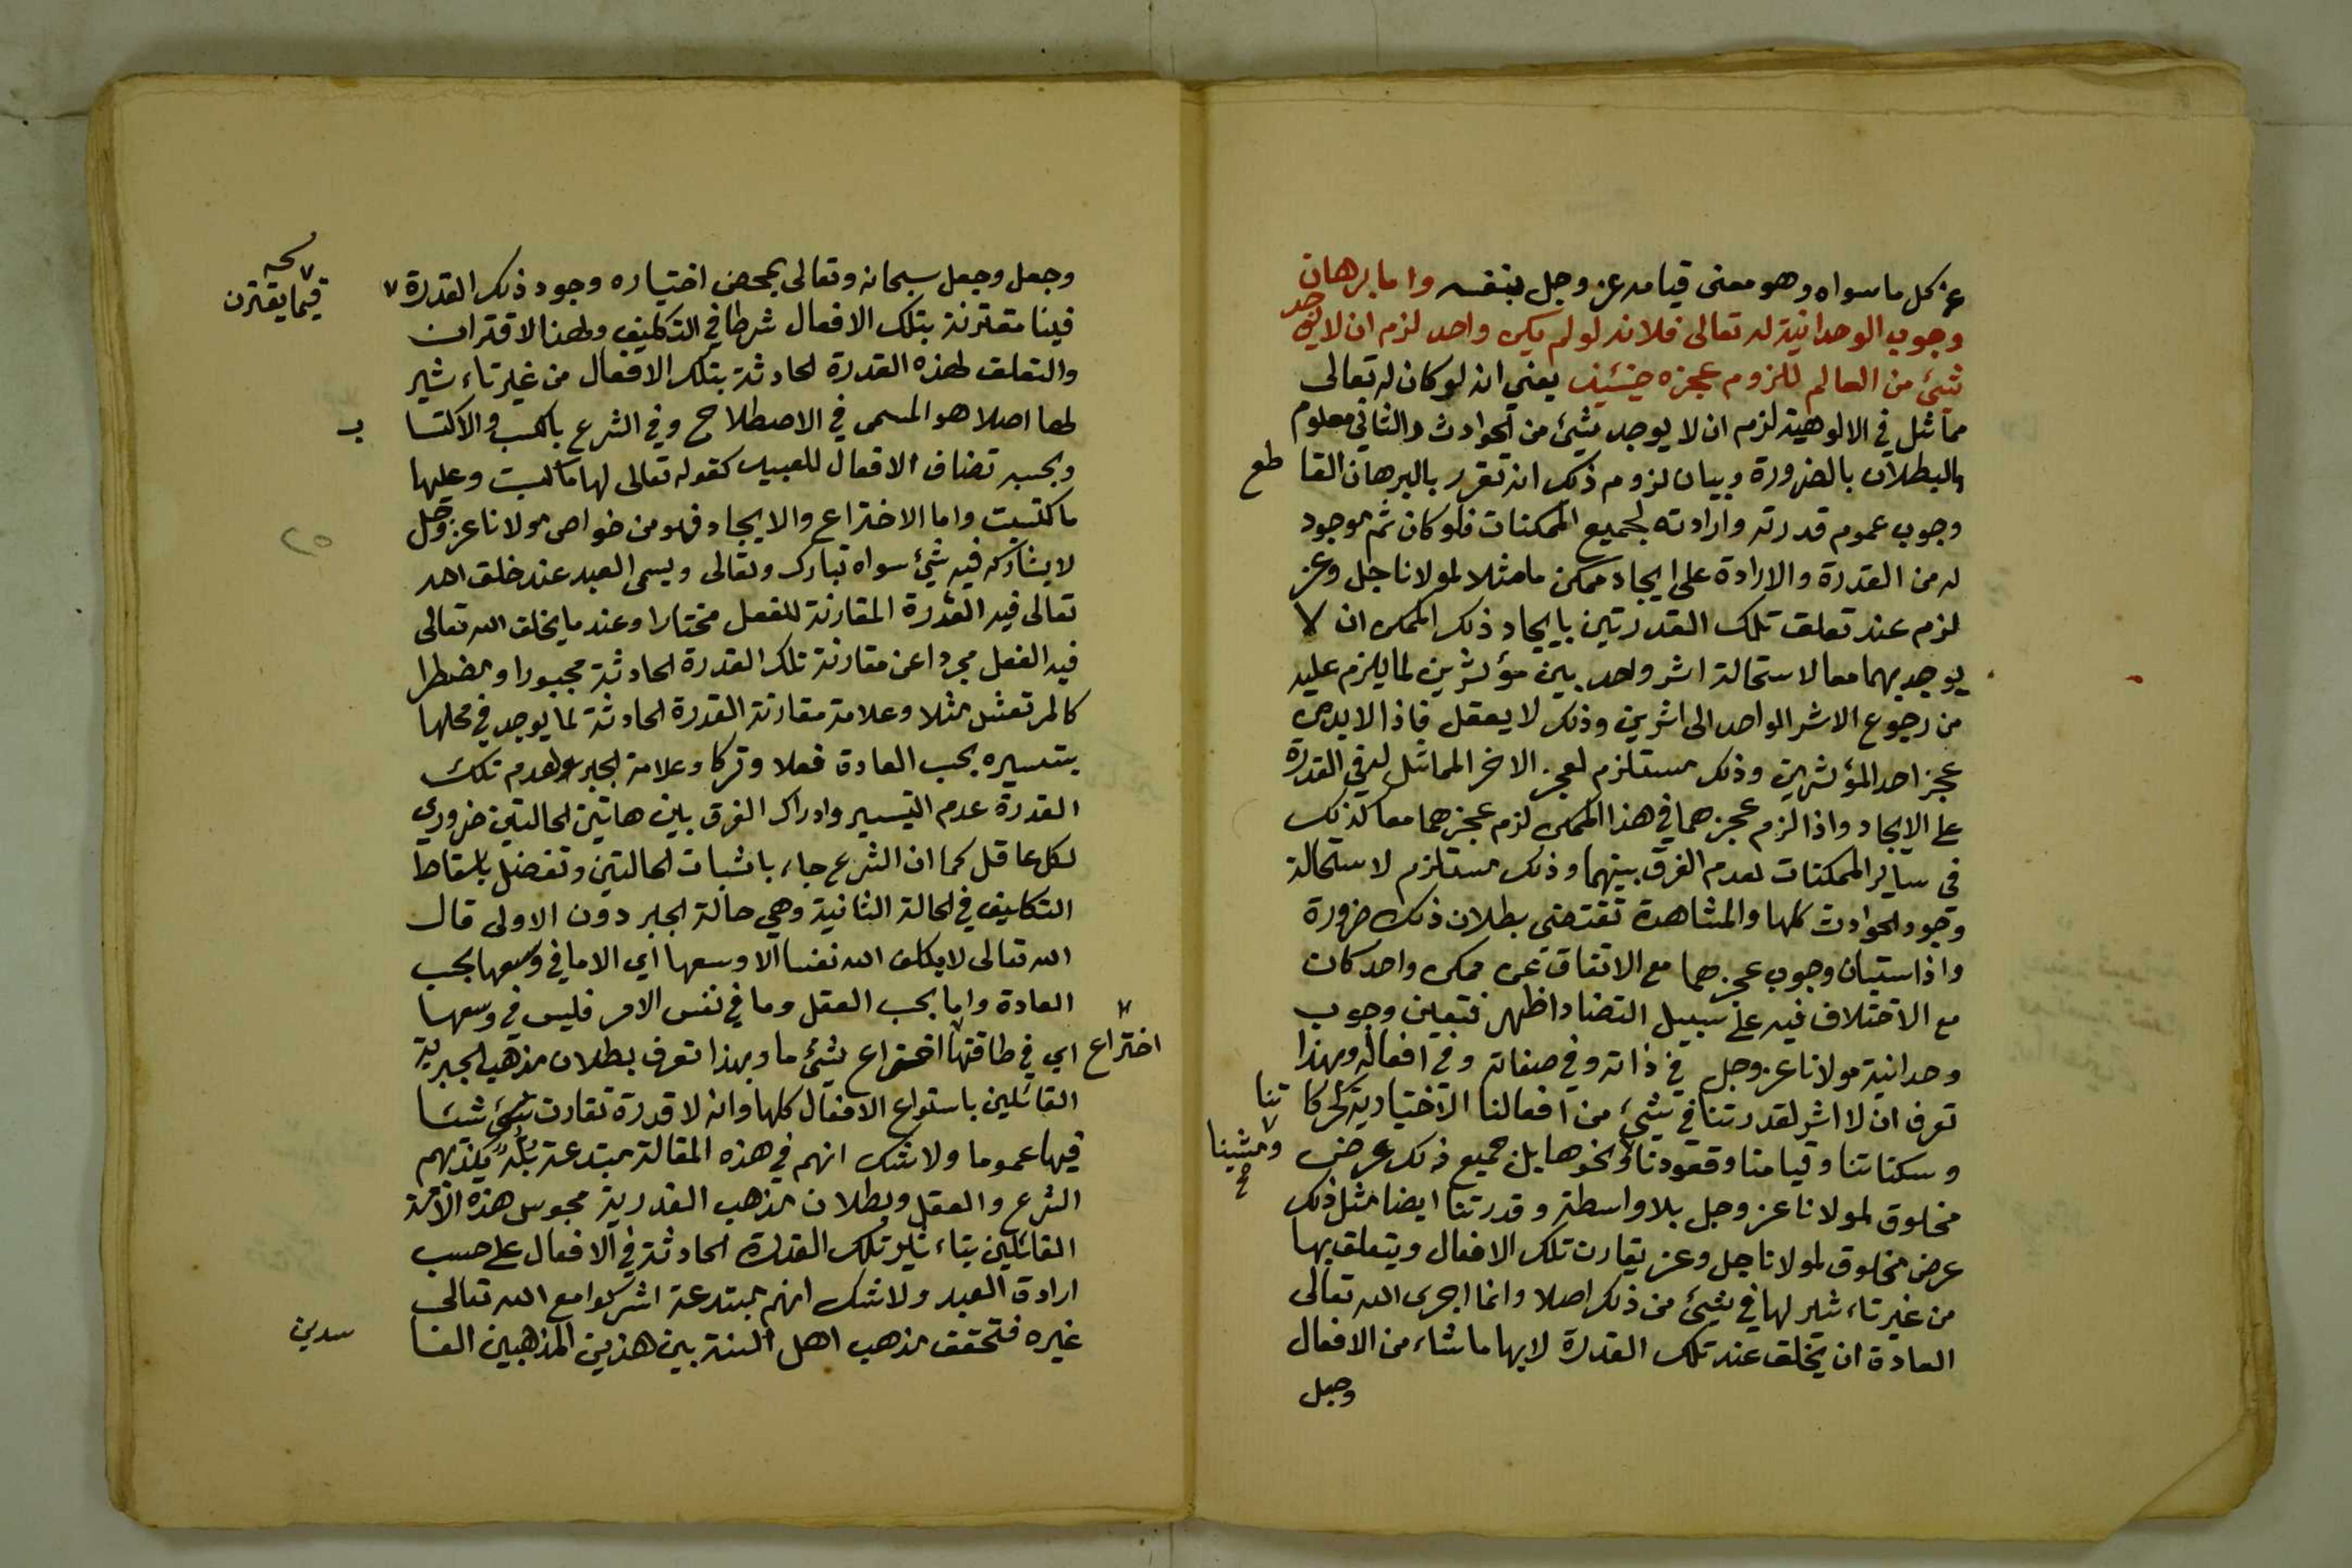 عن كل ما سواه وهو معنى قيامه عز وجل بنفسه واما برهان
وجوب الوحدانية له تعالى فلانه لو لم يكن واحد لزم ان لا يوجد
شئ من العالم للزوم عجزه حينئيذ يعني انه لو كان له تعالى
مماثل في الالوهية لزم ان لا يوجد شئ من الحوادث والثاني معلوم
البطلان بالضرورة وبيان لزوم ذلك انه تقرر بالبرهان القا طع
وجوب عموم قدرته وارادته لجميع الممكنات فلو كان ثم موجود
له من القدرة والارادة على ايجاد ممكن ما مثلا لمولانا جل وعز
لزم عند تعلق تلك القدرتين بايجاد ذلك الممكن ان لا
يوجد بهما معا لاستحالة اثر واحد بين مؤثرين لما يلزم عليه
من رجوع الاثر الواحد الى اثرين وذلك لا يعقل فاذا لا بد من
عجز احد المؤثرين وذلك مستلزم لعجز الاخر المماثل له في القدرة
على الايجاد واذا لزم عجزهما في هذا الممكن لزم عجزهما معا كذلك
في ساير الممكنات لعدم الفرق بينهما وذلك مستلزم لاستحالة
وجود الحوادث كلها والمشاهدة تقتضي بطلان ذلك ضرورة
واذا استبان وجوب عجزهما مع الاتفاق عن ممكن واحد كان
مع الاختلاف فيه على سبيل التضاد اظهر فتعين وجوب
وحدانية مولانا عز وجل في ذاته وفي صفاته وفي افعاله وبهذا
تعرف ان لا اثر لقدرتنا في شئ من افعالنا الاختيارية كحركا تنا
وسكناتنا وقيامنا وقعودنا ونحوها بل جميع ذلك عرض
ومشينا
مخلوق لمولانا عز وجل بلا واسطة وقدرتنا ايضا مثل ذلك
عرض مخلوق لمولانا جل وعز يقارن تلك الافعال ويتعلق بها
من غير تاءثير لها في شئ من ذلك اصلا وانما اجرى الله تعالى
العادة ان يخلق عند تلك القدرة لا بها ما شاء من الافعال
وجعل
وجعل وجعل سبحانه وتعالى بمحض اختياره وجود ذلك القدرة
فيما يقترن
فينا مقترنة بتلك الافعال شرطا في التكليف وهذا الاقتران
والتعلق لهذه القدرة الحادثة بتلك الافعال من غير تاءثير
لها اصلا هو المسمى في الاصطلاح وفي الشرع بالكسب والاكتسا ب
وبحسبه تضاف الافعال للعبيد كقوله تعالى لها ما كسبت وعليها
ما اكتسبت واما الاختراع والايجاد فهو من خواص مولانا عز وجل
لا يشاركه فيه شئ سواه تبارك وتعالى ويسمى العبد عند خلق الله
تعالى فيه القدرة المقارنة للفعل مختارا وعند ما يخلق الله تعالى
فيه الفعل مجردا عن مقارنة تلك القدرة الحادثة مجبورا ومضطرا
كالمرتعش مثلا وعلامة مقارنة القدرة الحادثة لما يوجد في محلها
بتيسيره بحسب العادة فعلا وتركا وعلامة الجبر وعدم تلك
القدرة عدم التيسير وادراك الفرق بين هاتين الحالتين ضروري
لكل عاقل كما ان الشرع جاء باثبات الحالتين وتفضل باسقاط
التكليف في الحالة الثانية وهي حالة الجبر دون الاولى قال
الله تعالى لا يكلف الله نفسا الا وسعها اي الا ما في وسعها بحسب
العادة واما بحسب العقل وما في نفس الامر فليس في وسعها
اي في طاقتها اختراع شئ ما وبهذا تعرف بطلان مذهب الجبرية
اختراع
القائلين باستواء الافعال كلها وانه لا قدرة تقارن شئ شئا
فيها عموما ولا شك انهم في هذه المقالة مبتدعة بله يكذبهم
الشرع والعقل وبطلان مذهب القدرية مجوس هذه الامة
القائلين بتاءثير تلك القدرة الحادثة في الافعال على حسب
ارادة العبد ولا شك انهم مبتدعة اشركوا مع الله تعالى
غيره فتحقق مذهب اهل السنة بين هذين المذهبين الفا سدين